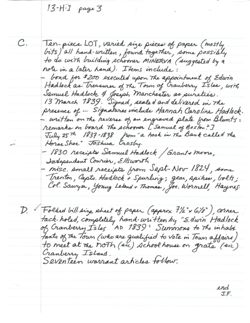 13-H-I page 3
C. Ten-piece LOT, varied size pieces of paper (mostly
bits) all hand-written, found together, some possibly
to do with building schooner MINERVA (suggested by a
note in a later hand). Items include:
- bond for $200 executed upon the appointment of Edwin
Hadlock as Treasurer of the Town of Cranberry Isles, with
Samuel Hadlock & Joseph Manchester as sureties.
13 March 1839. Signed, sealed and delivered in the
presence of — Signatures include Hannah Caroline Hadlock.
- written on the reverse of an engraved plate from Blunt's:
remarks on board the schooner [Samuel of Boston?]
July 25th 1837-1838 from "a rock in the Sound called the
Horse Shoe." Joshua Crosby.
- 1830 receipts Samuel Hadlock / Grant + more
Independent Courier, Ellsworth
- misc. small receipts from Sept-Nov 1824, some
Trenton, Capts Hadlock + Spurling; gear, spikes, bolts,
Col. Sawyer, Young Island + Thomas, Joe. Wormell, Haynes
D. Folded bill size sheet of paper (approx 7½" x 6½"), corner
tack holed, completely hand-written by "Edwin Hadlock
of Cranberry Isles AD 1839" Summons to the inhabi-
tants of the Town (who are qualified to vote in Town affairs)
to meet at the north (sic) school house on grate (sic)
Cranberry Island.
Seventeen warrant articles follow.
and
I.F.